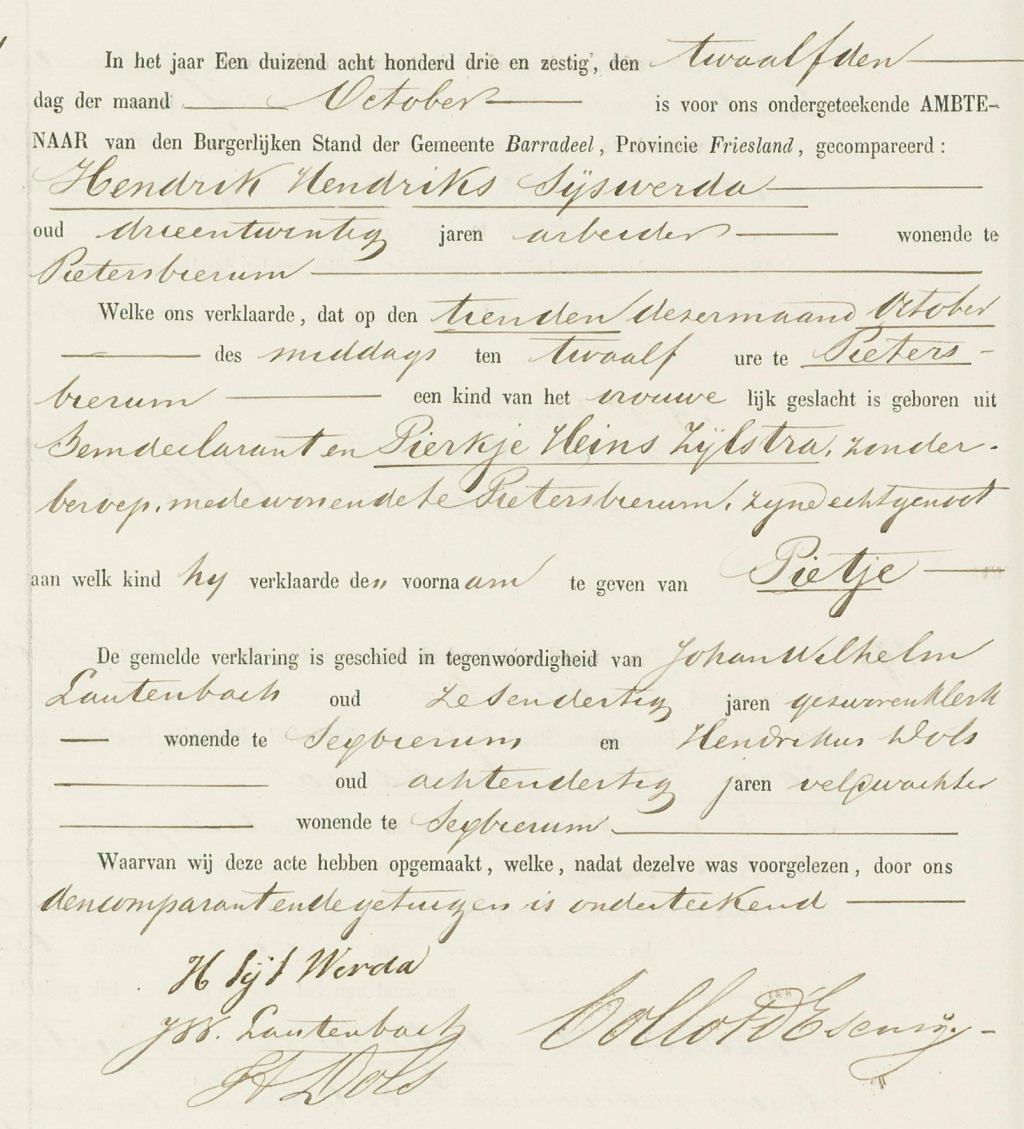 In het jaar Een duizend acht honderd drie en zestig, den twaalfden
dag der maand October is voor ons ondergeteekende AMBTE-
NAAR van den Burgerlijken Stand der Gemeente Barradeel, Provincie Friesland, gecompareerd:
Hendrik Hendriks Sijswerda
oud drieentwintig jaren arbeider wonende te
Pietersbierum
Welke ons verklaarde, dat op den tienden dezer maand October
des middags ten twaalf ure te Pieters-
bierum een kind van het vrouwe lijk geslacht is geboren uit
hem declarant en Pierkje Heins Zijlstra, zonder-
beroep, mede wonende te Pietersbierum, zyne echtgenoot
aan welk kind hy verklaarde den voornaam te geven van Pietje
De gemelde verklaring is geschied in tegenwoordigheid van Johan Wilhelm
Lautenbach oud zesendertig jaren gezworen klerk
wonende te Sexbierum en Hendrikus Dols
oud achtendertig jaren veldwachter
wonende te Sexbierum
Waarvan wij deze acte hebben opgemaakt, welke, nadat dezelve was voorgelezen, door ons
den comparant en de getuigen is onderteekend
H Sijs Werda
JW. Lautenbach
H Dols
Collot D Escury